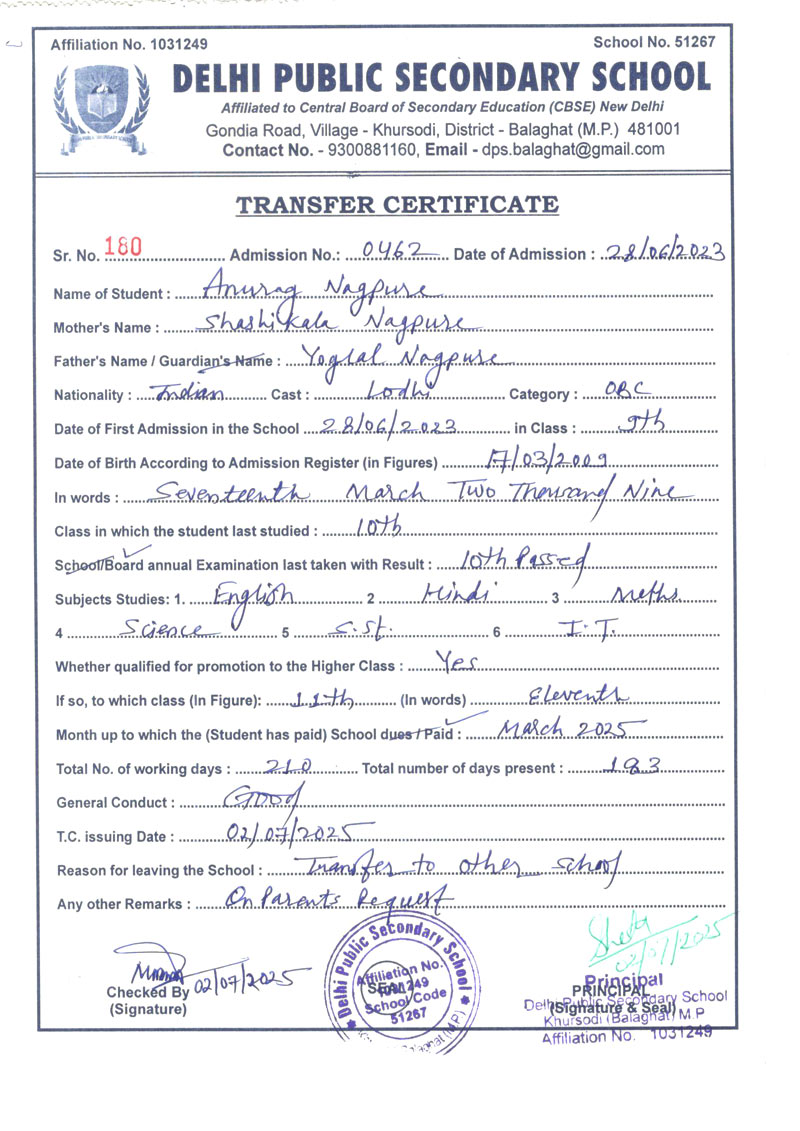 Affiliation No. 1031249 School No. 51267
DELHI PUBLIC SECONDARY SCHOOL
Affiliated to Central Board of Secondary Education (CBSE) New Delhi
Gondia Road, Village - Khursodi, District - Balaghat (M.P.) 481001
Contact No. - 9300881160, Email - dps.balaghat@gmail.com
TRANSFER CERTIFICATE
Sr. No. 180 Admission No.: 0462 Date of Admission : 28/06/2023
Name of Student : Anurag Nagpure
Mother's Name : Shashikala Nagpure
Father's Name / Guardian's Name : Yoglal Nagpure
Nationality : Indian Cast : Lodhi Category : OBC
Date of First Admission in the School 28/06/2023 in Class : 9th
Date of Birth According to Admission Register (in Figures) 17/03/2009
In words : Seventeenth March Two Thousand Nine
Class in which the student last studied : 10th
School/Board annual Examination last taken with Result : 10th Passed
Subjects Studies: 1. English 2 Hindi 3 Maths
4 Science 5 S.St. 6 I.T.
Whether qualified for promotion to the Higher Class : Yes
If so, to which class (In Figure): 11th (In words) Eleventh
Month up to which the (Student has paid) School dues / Paid : March 2025
Total No. of working days : 210 Total number of days present : 183
General Conduct : Good
T.C. issuing Date : 02/07/2025
Reason for leaving the School : Transfer to other school
Any other Remarks : On Parents Request
02/07/2025
Checked By 02/07/2025
(Signature)
Delhi Public Secondary School
Affiliation No.
1031249
SEAL
School Code
51267
Balaghat (M.P.)
Principal
PRINCIPAL
Delhi Public Secondary School
(Signature & Seal)
Khursodi (Balaghat) M.P
Affiliation No. 1031249